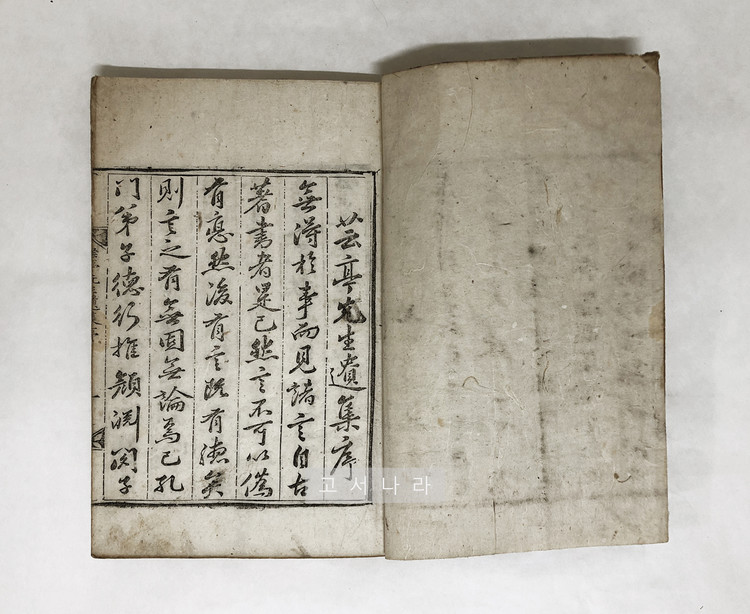 芸亭先生遺集序
無得於事而見諸言自古
著書者是已然言不可以僞
有德然後有言旣有德矣
則言之有無固無論焉已孔
门弟子德行推顔渊闵子
고서나라